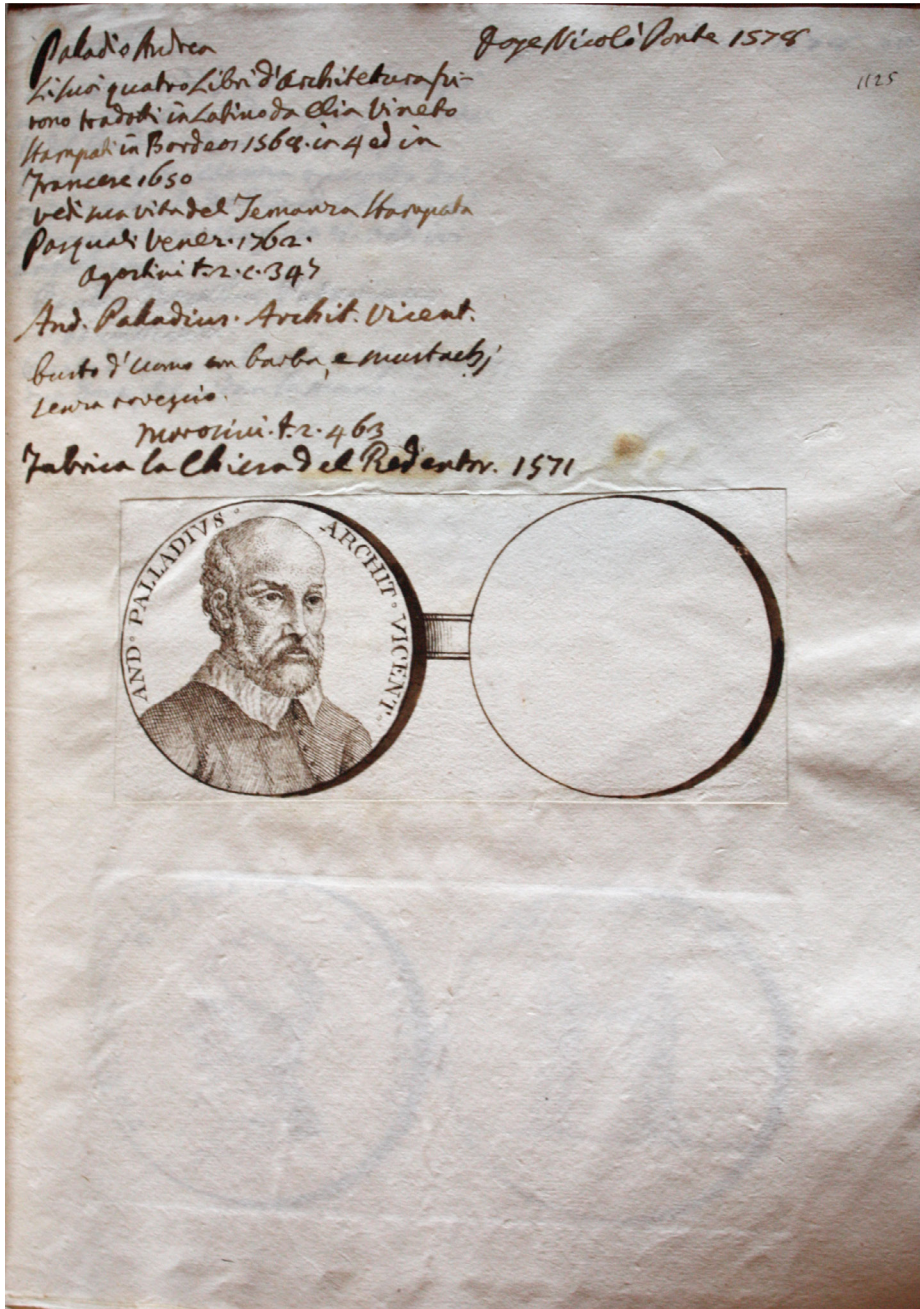 Paladio Andrea
Doge Nicolò Ponte 1578
1125
Li suoi quatro Libri d'Architetura fu-
rono tradoti in Latino da Elia Vineto
stampati in Bordeos 1568. in 4 ed in
Francese 1650
vedi sua vita del Temanza stampata
Pasquali Venez. 1762.
Agostini t. 2. c. 347
And. Paladius. Archit. Vicent.
busto d'uomo con barba, e mustachj
senza rovescio.
Morosini. t. 2. 463
Fabrica la Chiesa del Redentor. 1571
AND° PALLADIVS° ARCHIT° VICENT°